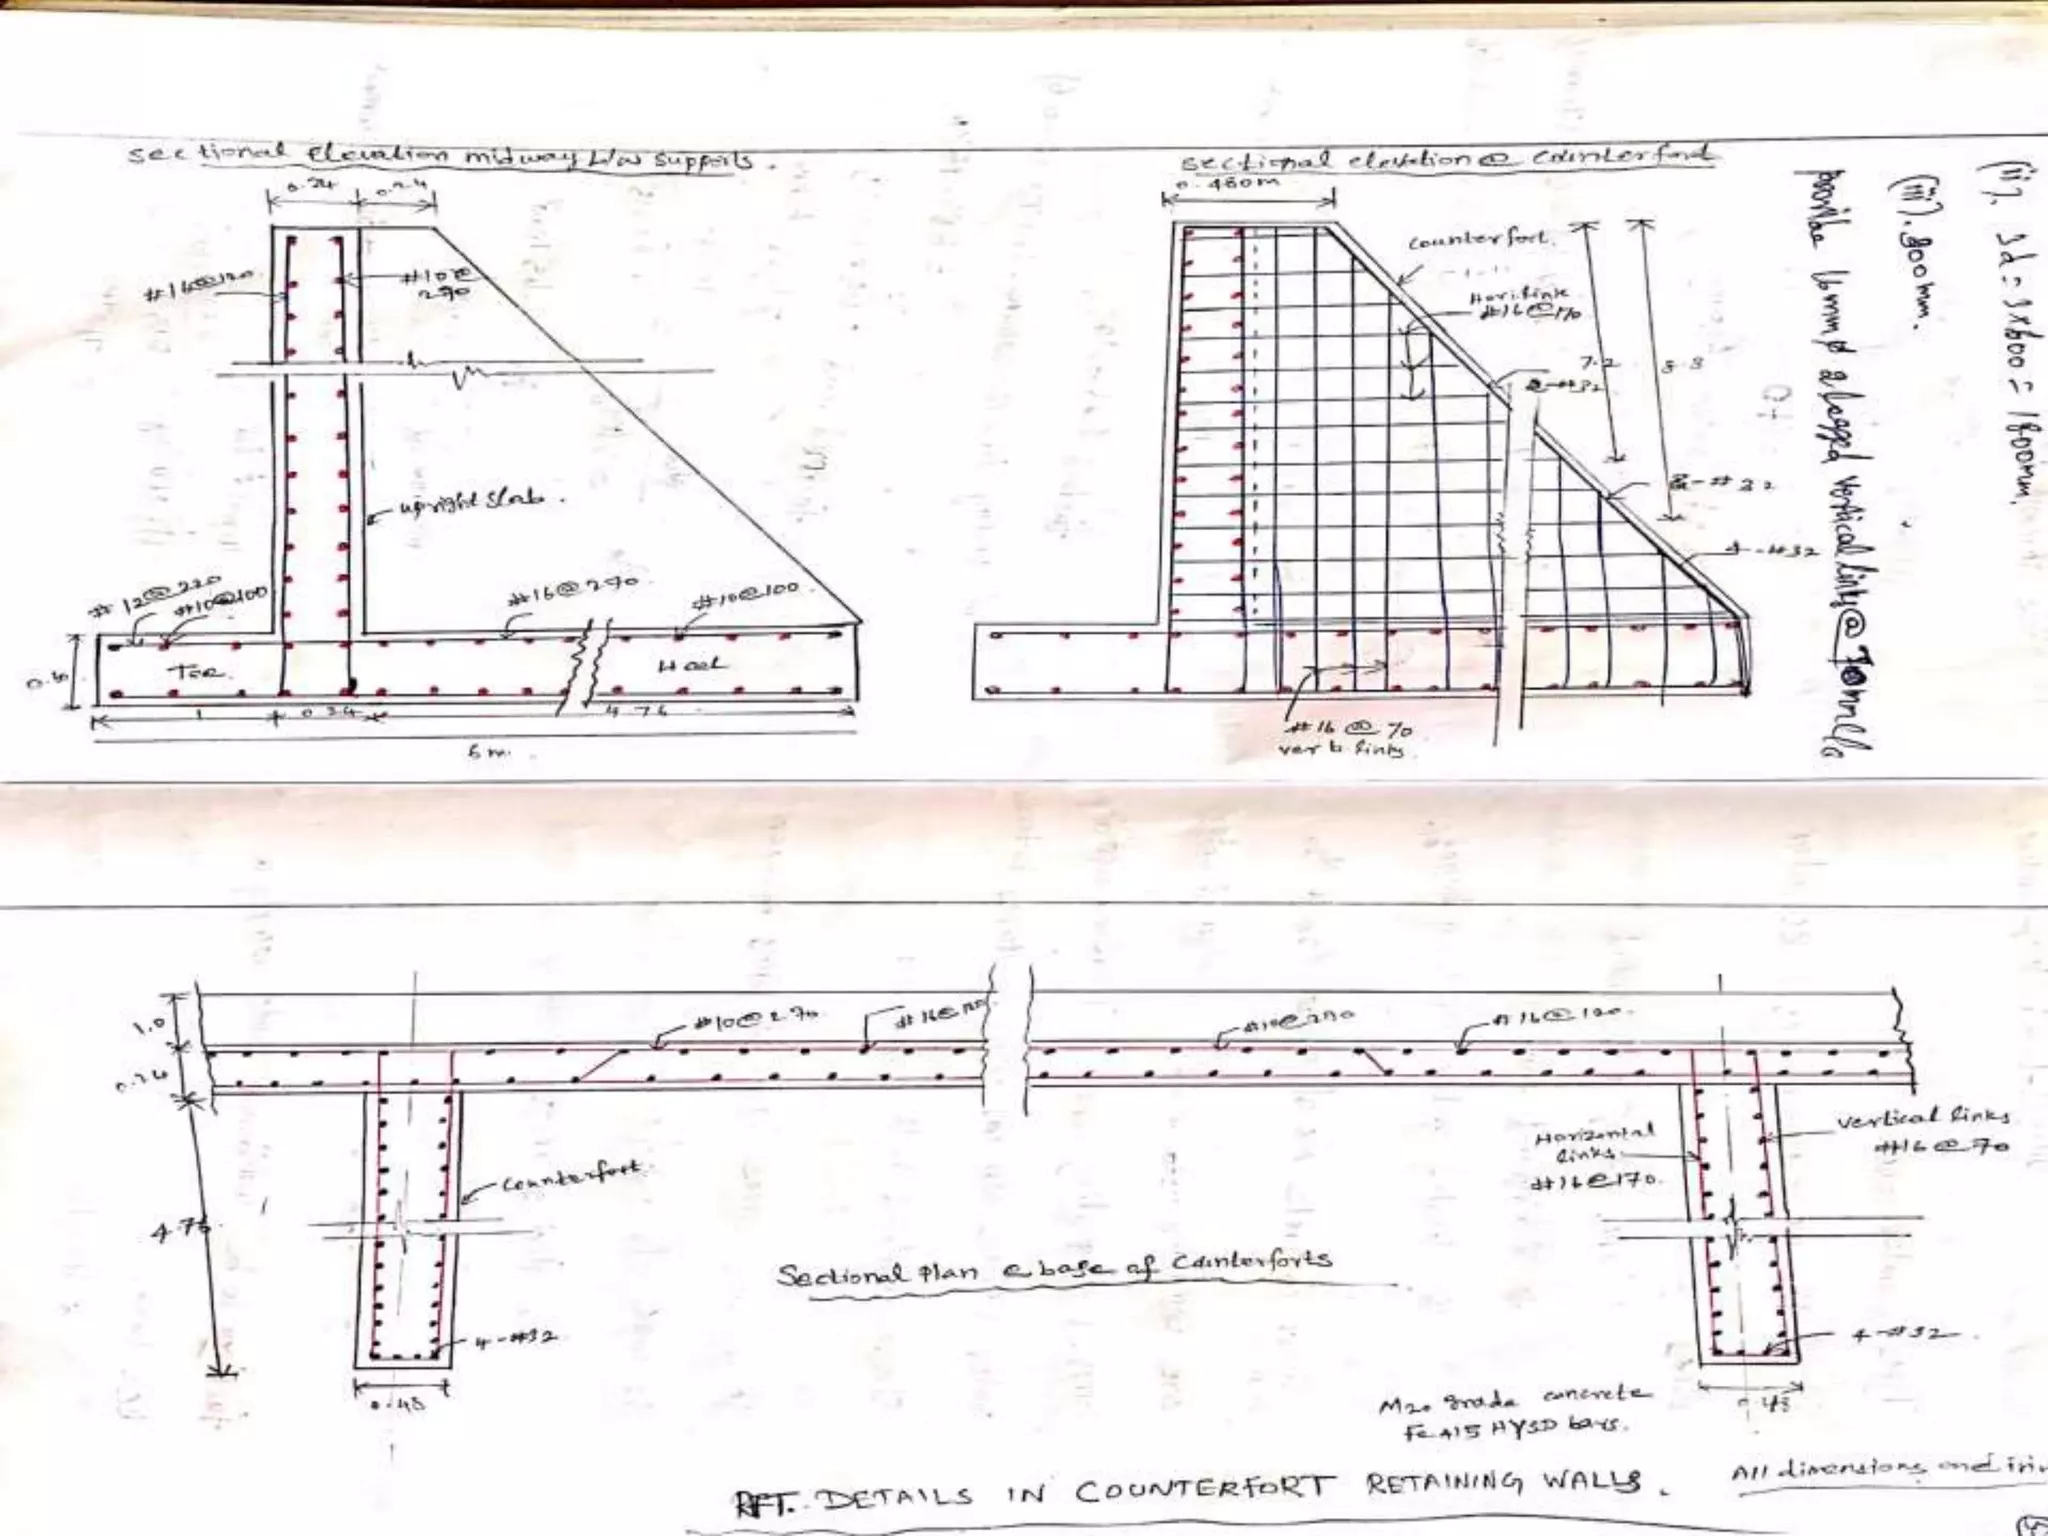 Sectional Elevation midway b/w supports.
0.24
0.24
#16@120
#10@
270
upright slab.
#12@220
#10@100
#16@270
#10@100
Toe.
Heel
0.6
1
0.24
4.76
6 m.
Sectional elevation @ Counterfort
0.480m
Counterfort.
Hori. link
#16@170
7.2
8.8
2-#32
4-#32
#16 @ 70
vert. links
(ii). 3d = 3x600 = 1800mm.
(iii). 300mm.
provide 16mmφ 2 legged vertical links @ 70mm c/c
1.0
0.24
4.76
#10@270
#16@120
#10@270
#16@120.
Counterfort.
4-#32
0.48
Horizontal
links
#16@170.
Vertical links
#16@70
4-#32
0.48
Sectional Plan @ base of Counterforts
M20 grade concrete
Fe 415 HYSD bars.
RFT. DETAILS IN COUNTERFORT RETAINING WALLS.
All dimensions